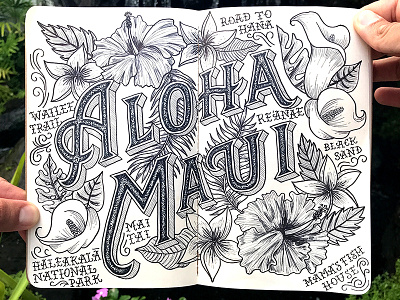 ROAD TO
HANA
WAILEE
TRAIL
ALOHA
KEANAE
MAUI
BLACK
SAND
MAI
TAI
HALEAKALA
NATIONAL
PARK
MAMA'S FISH
HOUSE